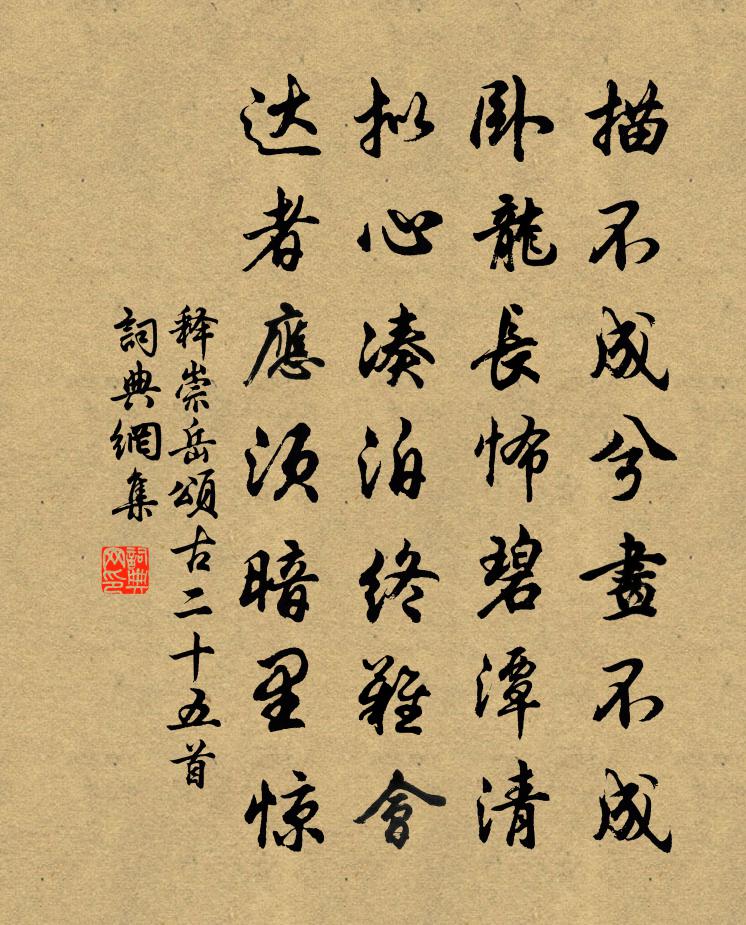 描不成兮畫不成
卧龍長怖碧潭清
拟心凑泊終難會
达者應须暗里惊
释崇岳頌古二十五首
詞典網集
詞典
网印